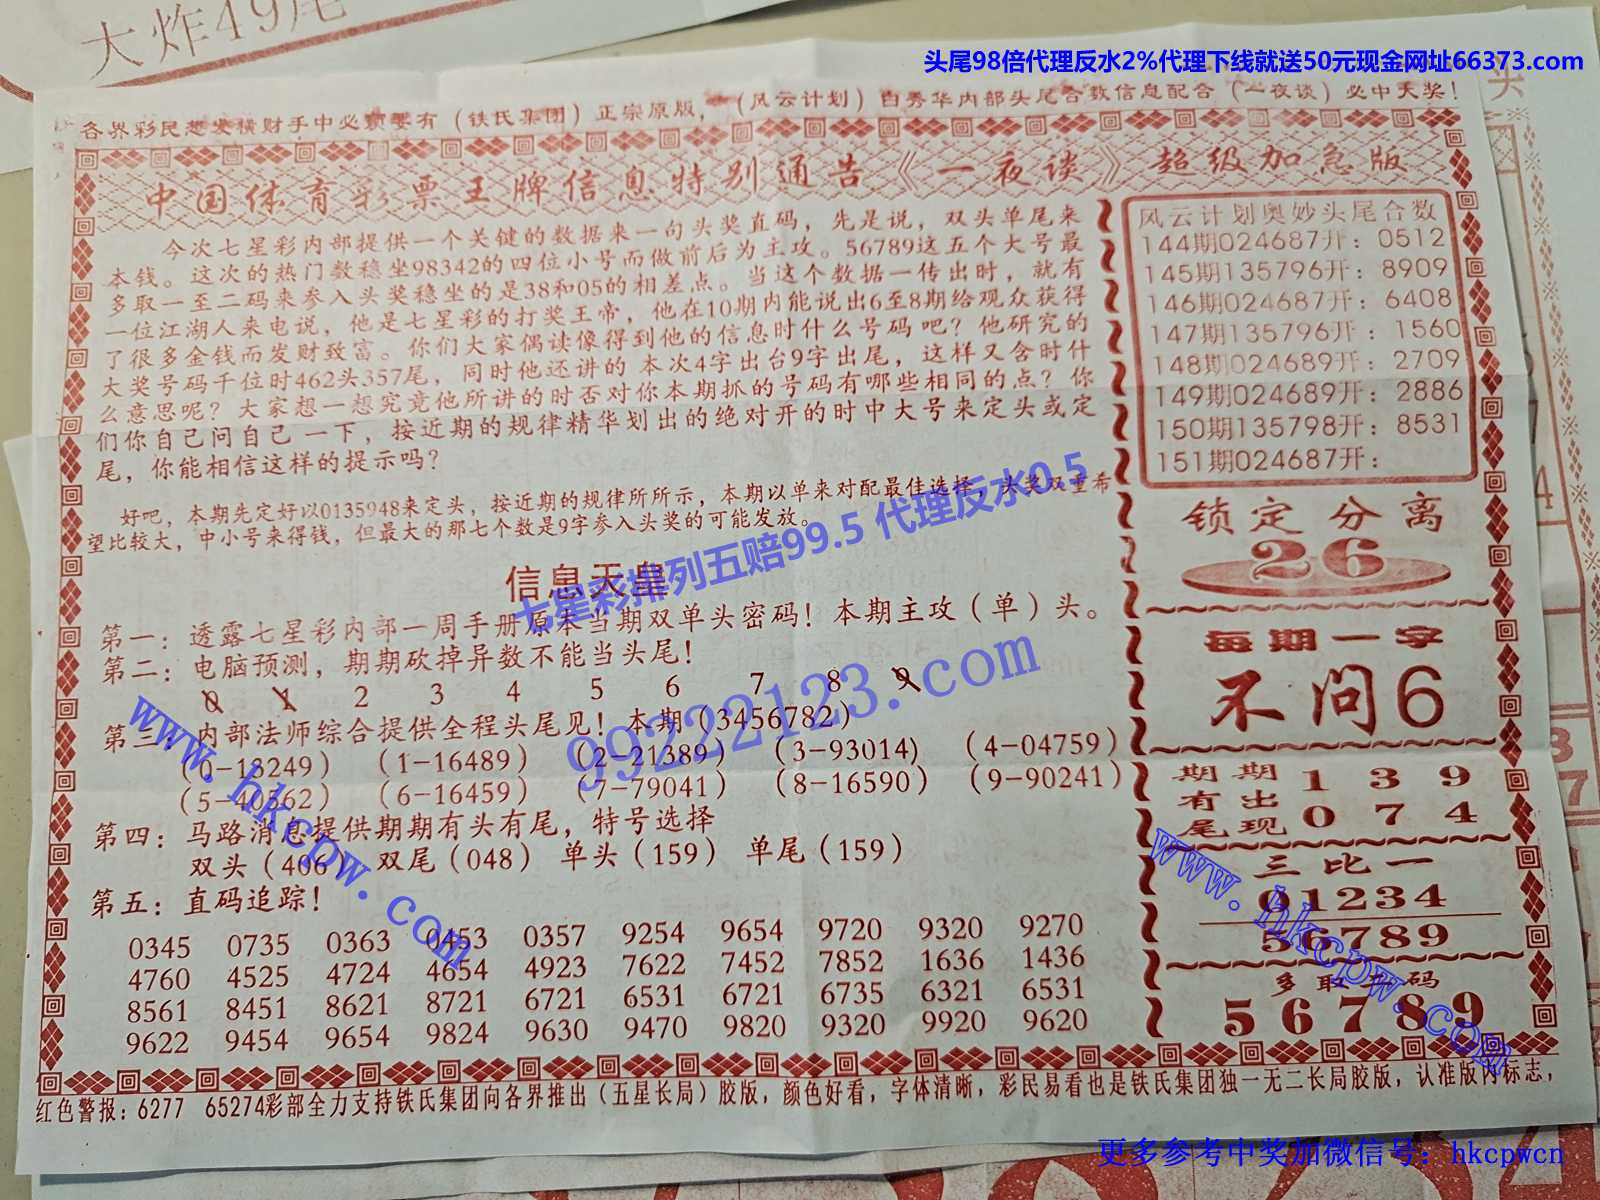 大炸49尾
头尾98倍代理反水2%代理下线就送50元现金网址66373.com
头
各界彩民想发横财手中必须要有（铁氏集团）正宗原版，（风云计划）白秀华内部头尾合数信息配合（一夜谈）必中大奖！
中国体育彩票王牌信息特别通告《一夜谈》超级加急版
今次七星彩内部提供一个关键的数据来一句头奖直码，先是说，双头单尾来
本钱。这次的热门数稳坐98342的四位小号而做前后为主攻。56789这五个大号最
多取一至二码来参入头奖稳坐的是38和05的相差点。当这个数据一传出时，就有
一位江湖人来电说，他是七星彩的打奖王帝，他在10期内能说出6至8期给观众获得
了很多金钱而发财致富。你们大家偶读像得到他的信息时什么号码吧？他研究的
大奖号码千位时462头357尾，同时他还讲的 本次4字出台9字出尾，这样又含时什
么意思呢？大家想一想究竟他所讲的时否对你本期抓的号码有哪些相同的点？你
们你自己问自己 一下，按近期的规律精华划出的绝对开的时中大号来定头或定
尾，你能相信这样的提示吗？
好吧，本期先定好以0135948来定头，按近期的规律所所示，本期以单来对配最佳选择 头奖双重希
望比较大，中小号来得钱，但最大的那七个数是9字参入头奖的可能发放。
七星彩排列五赔99.5 代理反水0.5
信息天皇
第一：透露七星彩内部一周手册原本当期双单头密码！本期主攻（单）头。
第二：电脑预测，期期砍掉异数不能当头尾！
0 1 2 3 4 5 6 7 8 9
99222123.com
第三：内部法师综合提供全程头尾见！本期（3456782）
（0-13249）（1-16489）（2-21389）（3-93014）（4-04759）
（5-40562）（6-16459）（7-79041）（8-16590）（9-90241）
第四：马路消息提供期期有头有尾，特号选择
双头（406） 双尾（048） 单头（159） 单尾（159）
第五：直码追踪！
0345 0735 0363 0453 0357 9254 9654 9720 9320 9270
4760 4525 4724 4654 4923 7622 7452 7852 1636 1436
8561 8451 8621 8721 6721 6531 6721 6735 6321 6531
9622 9454 9654 9824 9630 9470 9820 9320 9920 9620
www.hkcpw.com
风云计划奥妙头尾合数
144期024687开：0512
145期135796开：8909
146期024687开：6408
147期135796开：1560
148期024689开：2709
149期024689开：2886
150期135798开：8531
151期024687开：
锁定分离
26
每期一字
不问6
期期 1 3 9
有出
尾现 0 7 4
三比一
01234
56789
多取 码
56789
www.hkcpw.com
红色警报：6277 65274彩部全力支持铁氏集团向各界推出（五星长局）胶版，颜色好看，字体清晰，彩民易看也是铁氏集团独一无二长局胶版，认准版内标志，
更多参考中奖加微信号：hkcpwcn